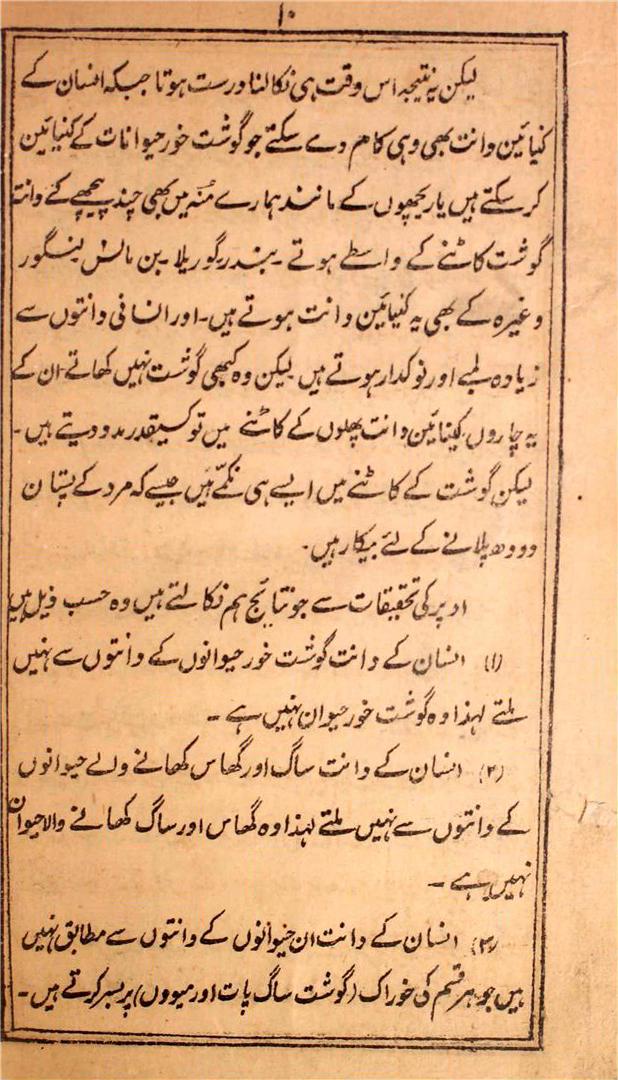 ۱۰
لیکن یہ نتیجہ اس وقت ہی نکالنا درست ہوتا جبکہ انسان کے
کنیائین دانت بھی وہی کام دے سکتے جو گوشت خور حیوانات کے کنیائین
کر سکتے ہیں یا ریچھوں کے مانند ہمارے منہ میں بھی چند پیچھے کے دانت
گوشت کاٹنے کے واسطے ہوتے ۔ بندر گوریلا ۔ بن مانس لینگور
وغیرہ کے بھی یہ کنیائین دانت ہوتے ہیں ۔ اور انسانی دانتوں سے
زیادہ لمبے اور نوکدار ہوتے ہیں لیکن وہ کبھی گوشت نہیں کھاتے ان کے
یہ چاروں کینائین دانت پھلوں کے کاٹنے میں تو کسیقدر مدد دیتے ہیں ۔
لیکن گوشت کے کاٹنے میں ایسے ہی نکمّے ہیں جیسے کہ مرد کے پستان
دودھ پلانے کے لئے بیکار ہیں ۔
اوپر کی تحقیقات سے جو نتایج ہم نکالتے ہیں وہ حسب ذیل ہیں
(۱) انسان کے دانت گوشت خور حیوانوں کے دانتوں سے نہیں
ملتے لہذا وہ گوشت خور حیوان نہیں ہے ۔
(۲) انسان کے دانت ساگ اور گھاس کھانے والے حیوانوں
کے دانتوں سے نہیں ملتے لہذا وہ گھاس اور ساگ کھانے والا حیوان
نہیں ہے ۔
(۳) انسان کے دانت ان حیوانوں کے دانتوں سے مطابق نہیں
ہیں جو ہر قسم کی خوراک (گوشت ساگ پات اور میووں) پر بسر کرتے ہیں ۔